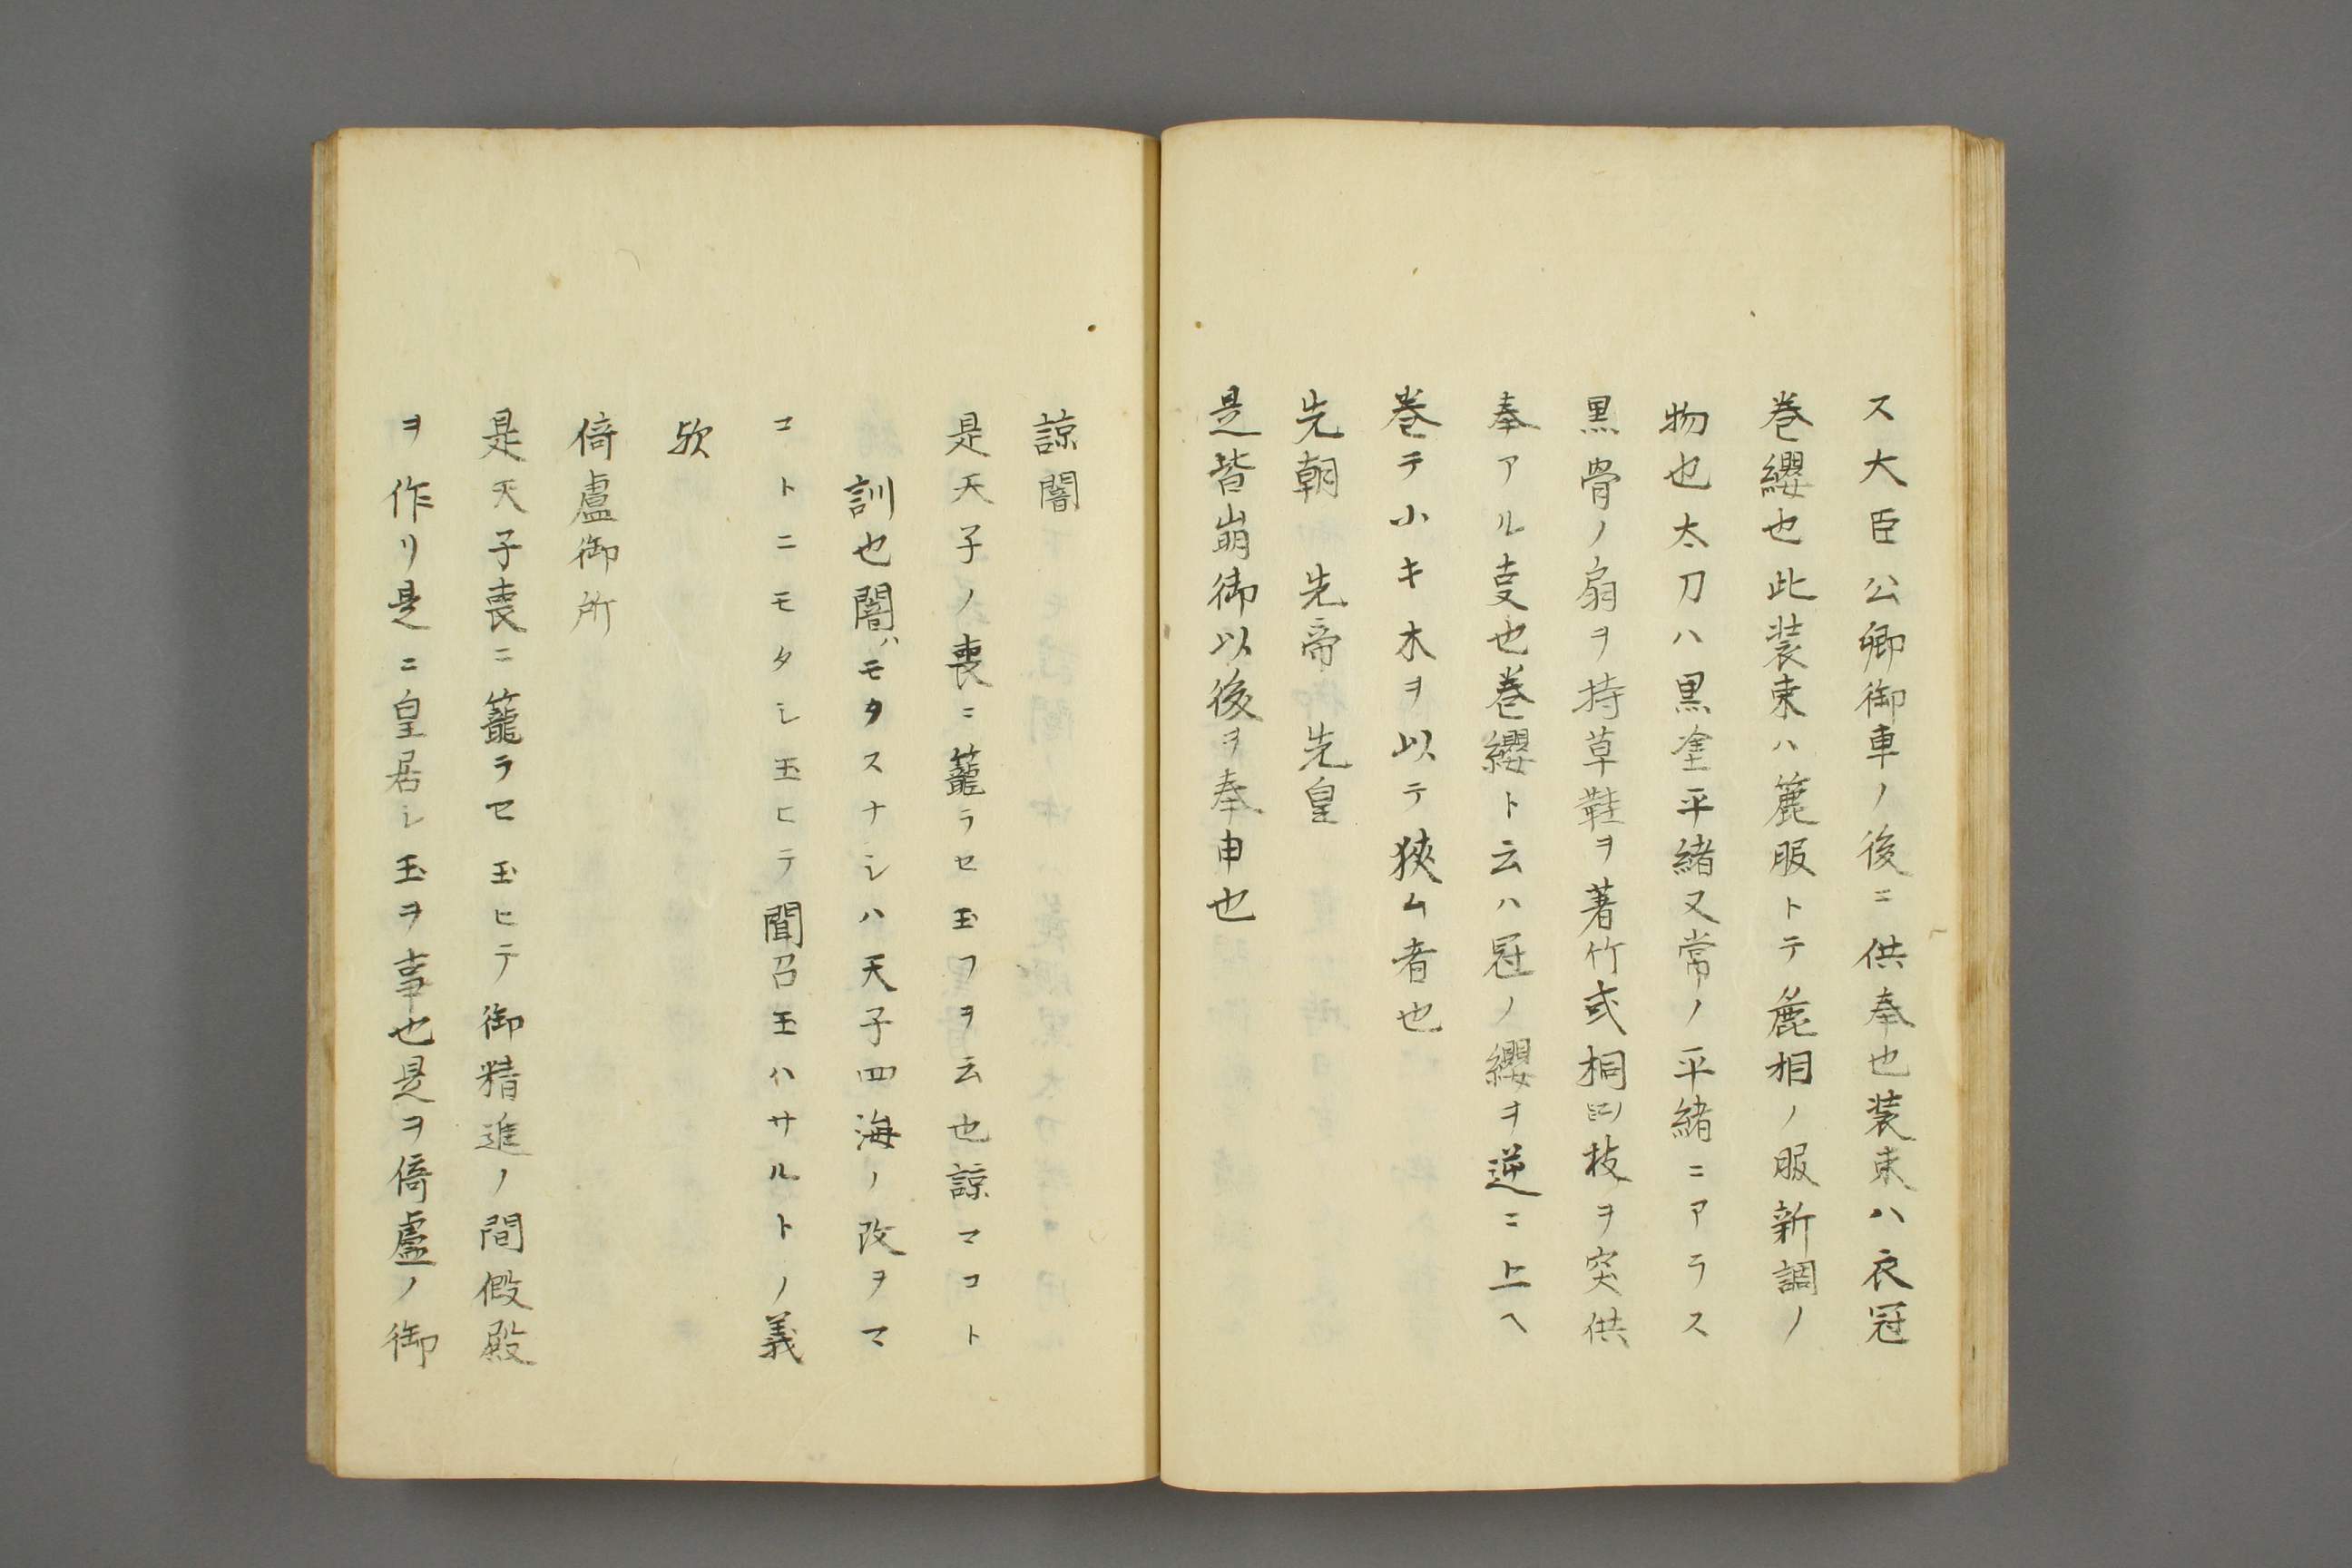 ス大臣公卿御車ノ後ニ供奉也装束ハ衣冠
巻纓也此装束ハ麁服トテ麁相ノ服新調ノ
物也太刀ハ黒塗平緒又常ノ平緒ニアラス
黒骨ノ扇ヲ持草鞋ヲ著竹或桐ノ枝ヲ突供
奉アル叓也巻纓ト云ハ冠ノ纓ヲ逆ニ上ヘ
巻テ小キ木ヲ以テ狹ム者也
先朝 先帝 先皇
是皆崩御以後ヲ奉申也
諒闇
是天子ノ喪ニ籠ラセ玉フヲ云也諒マコト
訓也闇ハモタスナシハ天子四海ノ改ヲマ
コトニモタシ玉ヒテ聞召玉ハサルトノ義
欤
倚盧御所
是天子喪ニ籠ラセ玉ヒテ御精進ノ間假殿
ヲ作リ是ニ皇居シ玉ヲ事也是ヲ倚盧ノ御